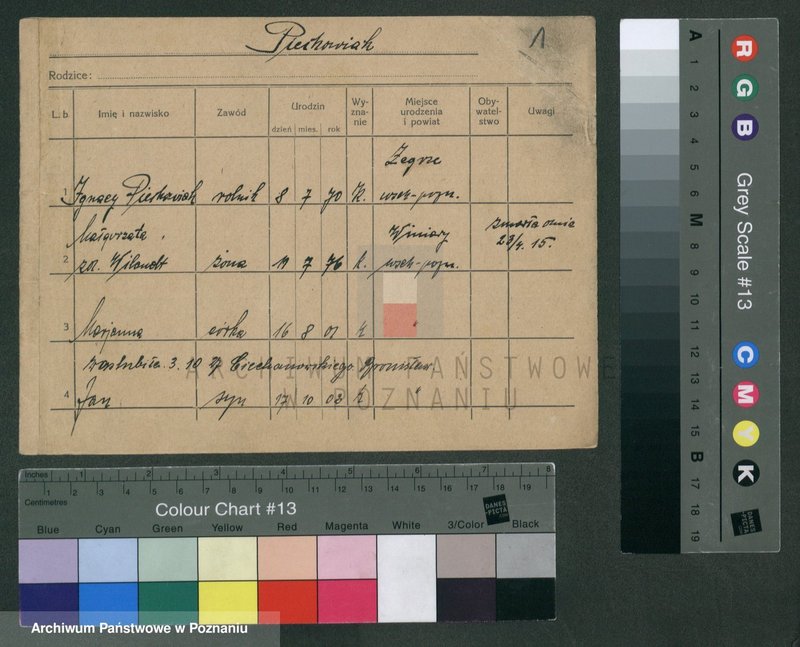 Pieskowiak
1
Rodzice:
L. b. Imię i nazwisko Zawód Urodzin dzień mies. rok Wy-zna-nie Miejsce urodzenia i powiat Oby-watel-stwo Uwagi
Zegrze
1 Ignacy Pieskowiak rolnik 8 7 70 K. wsch-pozn.
Małgorzata Winiary zmarła dnia
2 żona 11 7 76 k. wsch-pozn. 15.
3 Marjanna córka 16 8 01 k "
zaślubiła 3. 10 Ciechanowskiego Bronisław
4 Jan syn 17 10 03 k "
ARCHIWUM PAŃSTWOWE
W POZNANIU
Inches 1 2 3 4 5 6 7 8
Centimetres 1 2 3 4 5 6 7 8 9 10 11 12 13 14 15 16 17 18 19
Colour Chart #13
DANES-PICTA.COM
Blue Cyan Green Yellow Red Magenta White 3/Color Black
Archiwum Państwowe w Poznaniu
R G B Grey Scale #13 C M Y K
A 1 2 3 4 5 6 M 8 9 10 11 12 13 14 15 B 17 18 19
DANES-PICTA